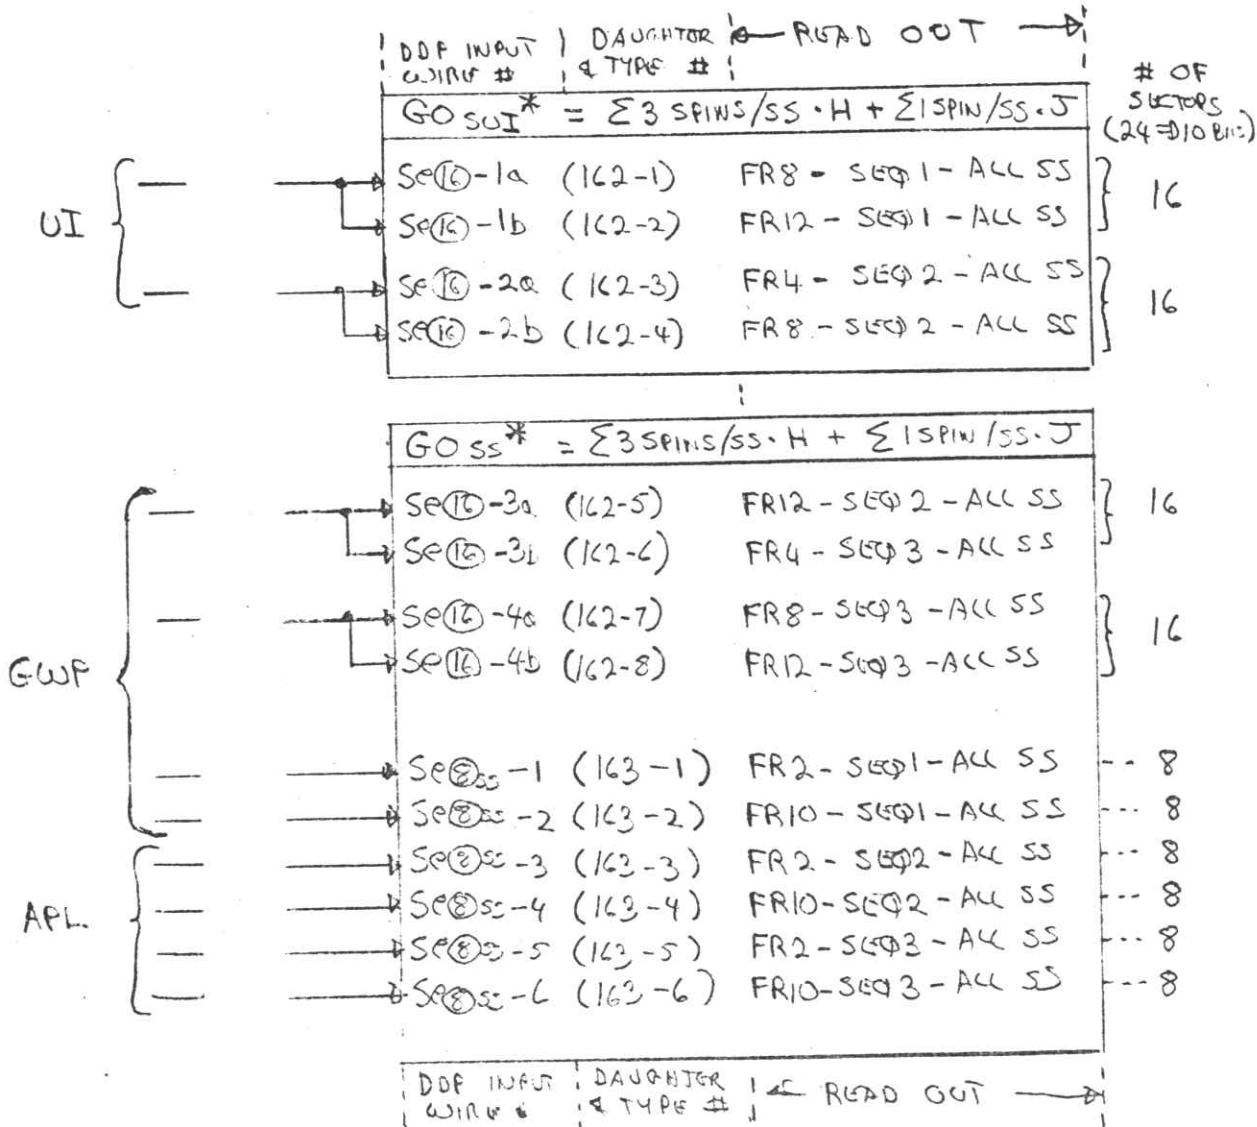 DDP INPUT DAUGHTER ← READ OUT →
WIRE # & TYPE #
# OF
SECTORS
(24 ⇒ 10 BITS)
GO SUI* = Σ3 SPINS/SS·H + Σ1SPIN/SS·J
UI
Se⑯-1a (162-1) FR8 - SEQ 1 - ALL SS
16
Se⑯-1b (162-2) FR12 - SEQ 1 - ALL SS
Se⑯-2a (162-3) FR4 - SEQ 2 - ALL SS
16
Se⑯-2b (162-4) FR8 - SEQ 2 - ALL SS
GO SS* = Σ3 SPINS/SS·H + Σ1SPIN/SS·J
Se⑯-3a (162-5) FR12 - SEQ 2 - ALL SS
16
Se⑯-3b (162-6) FR4 - SEQ 3 - ALL SS
Se⑯-4a (162-7) FR8 - SEQ 3 - ALL SS
16
Se⑯-4b (162-8) FR12 - SEQ 3 - ALL SS
GWP
Se⑧ss-1 (163-1) FR2 - SEQ1 - ALL SS --- 8
Se⑧ss-2 (163-2) FR10 - SEQ1 - ALL SS --- 8
Se⑧ss-3 (163-3) FR2 - SEQ2 - ALL SS --- 8
APL
Se⑧ss-4 (163-4) FR10 - SEQ2 - ALL SS --- 8
Se⑧ss-5 (163-5) FR2 - SEQ3 - ALL SS --- 8
Se⑧ss-6 (163-6) FR10 - SEQ3 - ALL SS --- 8
DDP INPUT DAUGHTER ← READ OUT →
WIRE # & TYPE #